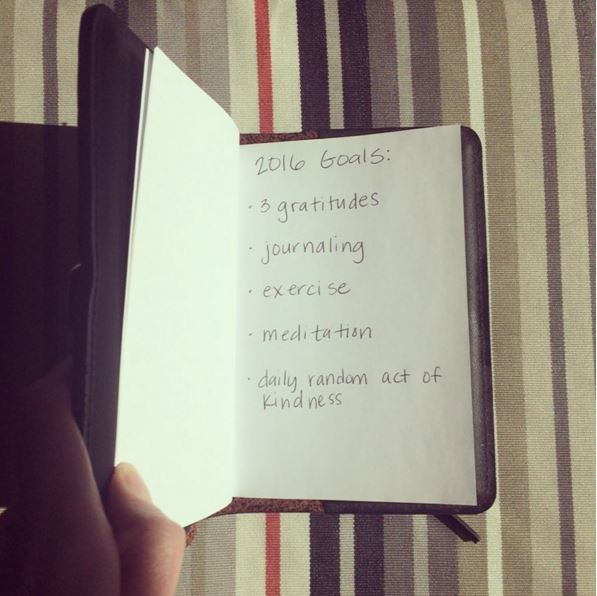 2016 Goals:
· 3 gratitudes
· journaling
· exercise
· meditation
· daily random act of
kindness